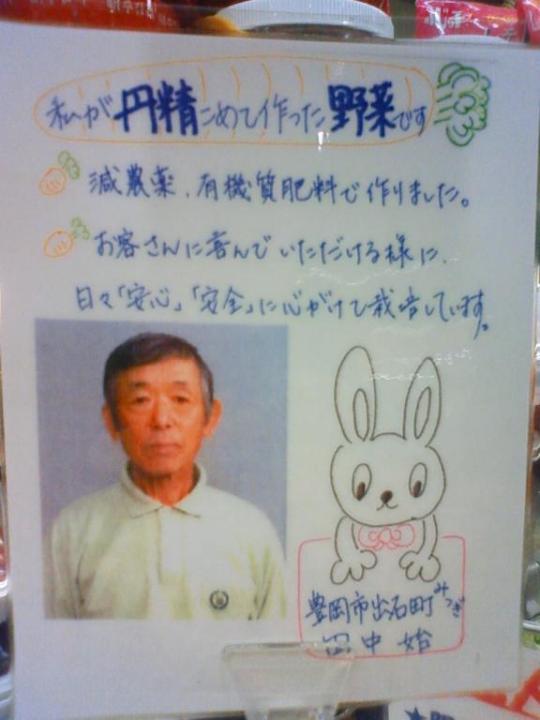 私が丹精こめて作った野菜です
減農薬、有機質肥料で作りました。
お客さんに喜んでいただける様に、
日々「安心」「安全」に心がけて栽培しています。
豊岡市出石町
みつぎ
田中 始